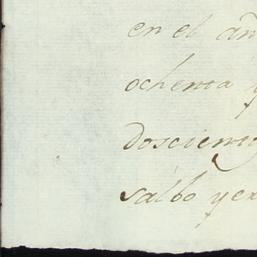 en el añ
ochenta y
doscient
salbo y ex